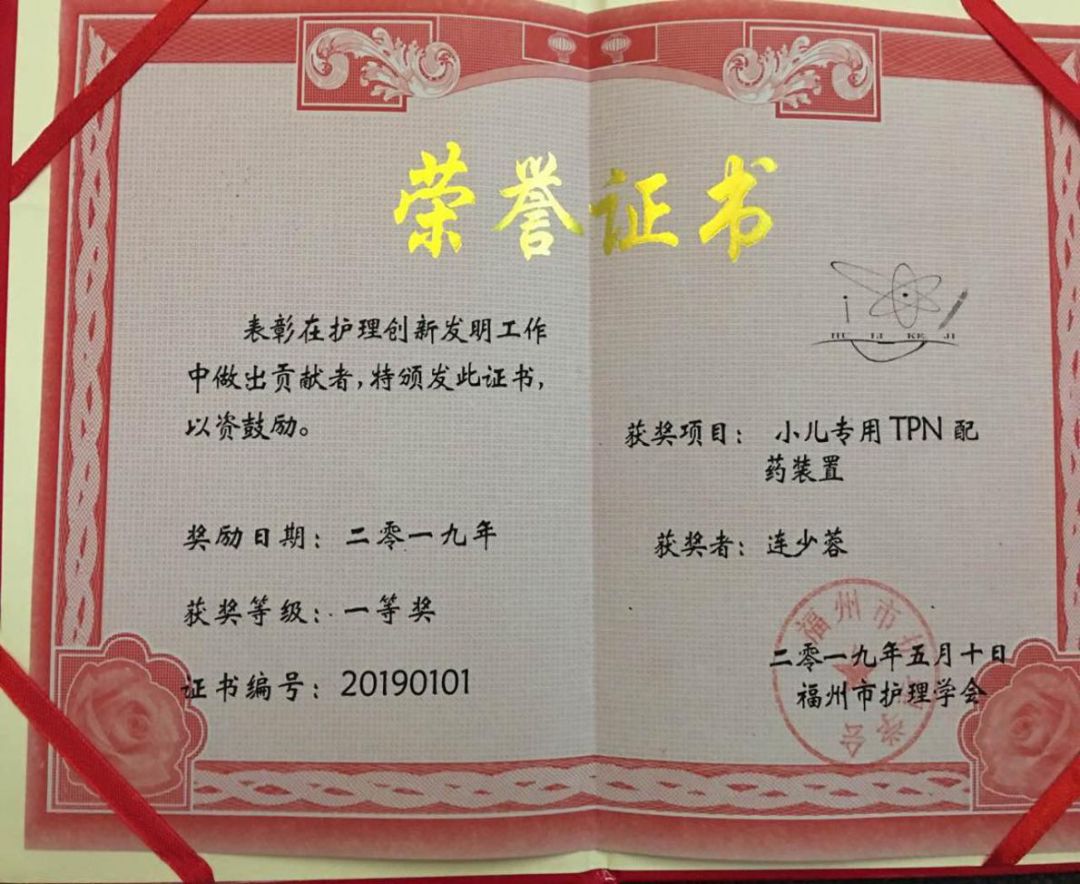 荣誉证书
表彰在护理创新发明工作
中做出贡献者，特颁发此证书，
以资鼓励。
奖励日期：二零一九年
获奖等级：一等奖
证书编号：20190101
HU LI KE JI
获奖项目：小儿专用TPN配
药装置
获奖者：连少蓉
二零一九年五月十日
福州市护理学会
福州市护理学会